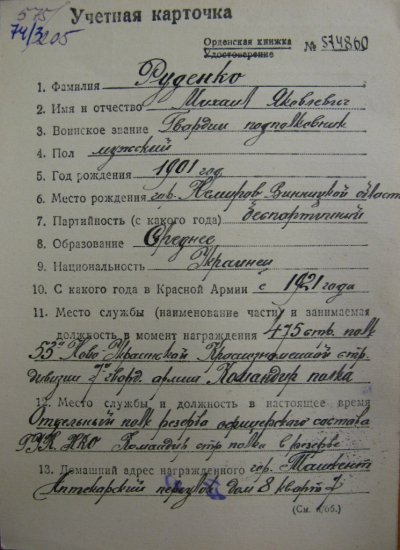 575/
74/3205
Учетная карточка
Орденская книжка
Удостоверение № 574860
1. Фамилия Руденко
2. Имя и отчество Михаил Яковлевич
3. Воинское звание Гвардии подполковник
4. Пол мужской
5. Год рождения 1901 год
6. Место рождения гор. Немиров, Винницкой области
7. Партийность (с какого года) беспартийный
8. Образование Среднее
9. Национальность Украинец
10. С какого года в Красной Армии с 1921 года
11. Место службы (наименование части) и занимаемая
должность в момент награждения 475 стр. полк
53й Ново Украинской Краснознаменной стр.
дивизии 7 гвард. армии Командир полка
12. Место службы и должность в настоящее время
Отдельный полк резерва офицерского состава
ГУК НКО Командир стр полка в резерве
13. Домашний адрес награжденного гор. Ташкент
Аптекарский переулок дом 8 кварт 7
(См. н/об.)